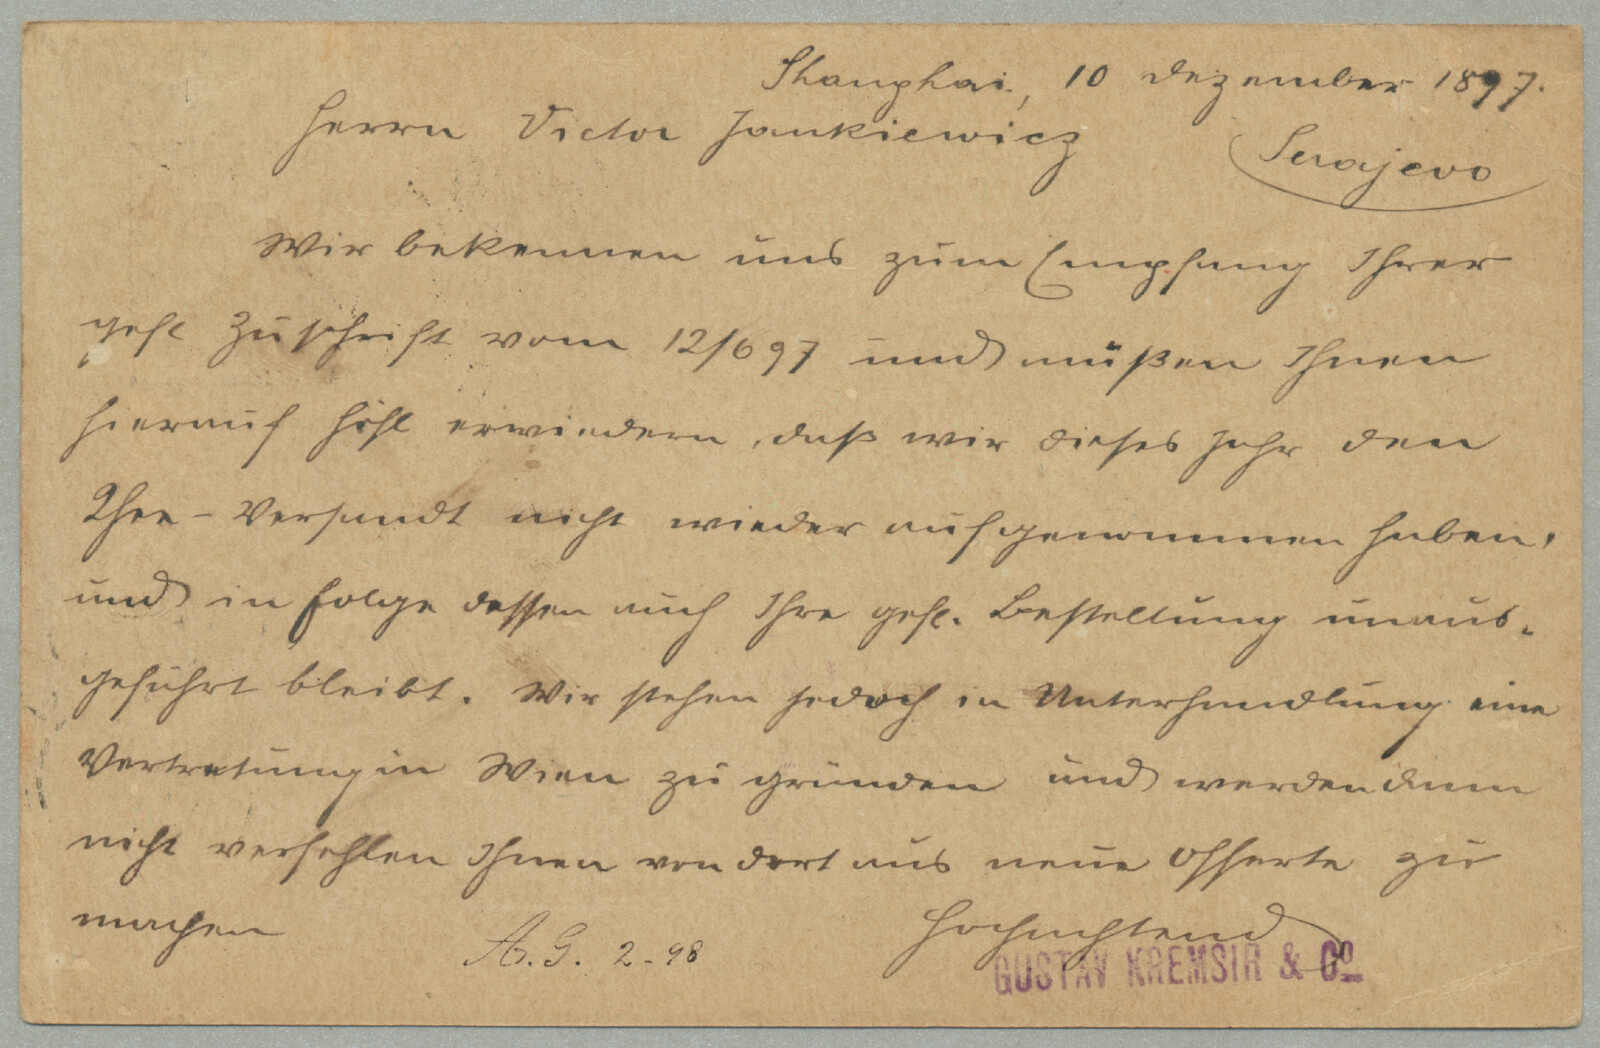 Shanghai, 10 Dezember 1897.
Herrn Victor Jankiewicz
Serajevo
Wir bekennen uns zum Empfang Ihrer
gefl Zuschrift vom 12/6 97 und müßen Ihnen
hierauf höfl erwiedern, daß wir dieses Jahr den
Thee-Versandt nicht wieder aufgenommen haben,
und in Folge dessen auch Ihre gefl. Bestellung unaus-
geführt bleibt. Wir stehen jedoch in Unterhandlung eine
Vertretung in Wien zu gründen und werden dann
nicht verfehlen Ihnen von dort aus neue Offerte zu
machen
Hochachtend
A.G. 2-98
GUSTAV KREMSIR & Co